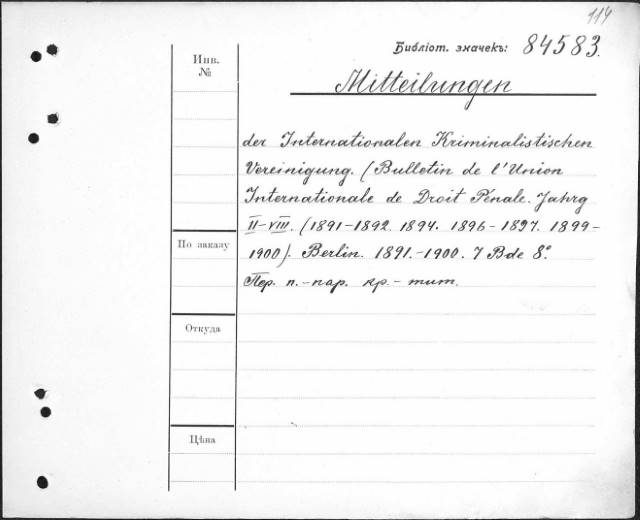 114
Библіот. значекъ: 84583.
Инв.
№
Mitteilungen
der Internationalen Kriminalistischen
Vereinigung. (Bulletin de l'Union
Internationale de Droit Pénale. Jahrg
II–VIII. (1891–1892. 1894. 1896–1897. 1899–
По заказу
1900). Berlin. 1891.–1900. 7 Bde 8°.
Пер. п.–пар. кр.–тит.
Откуда
Цѣна